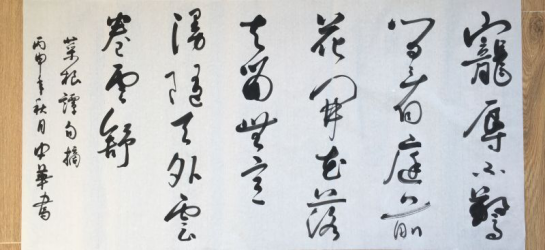 寵辱不驚
閒看庭前
花開花落
去留無意
漫隨天外雲
卷雲舒
菜根譚句摘
丙申年秋月中華書